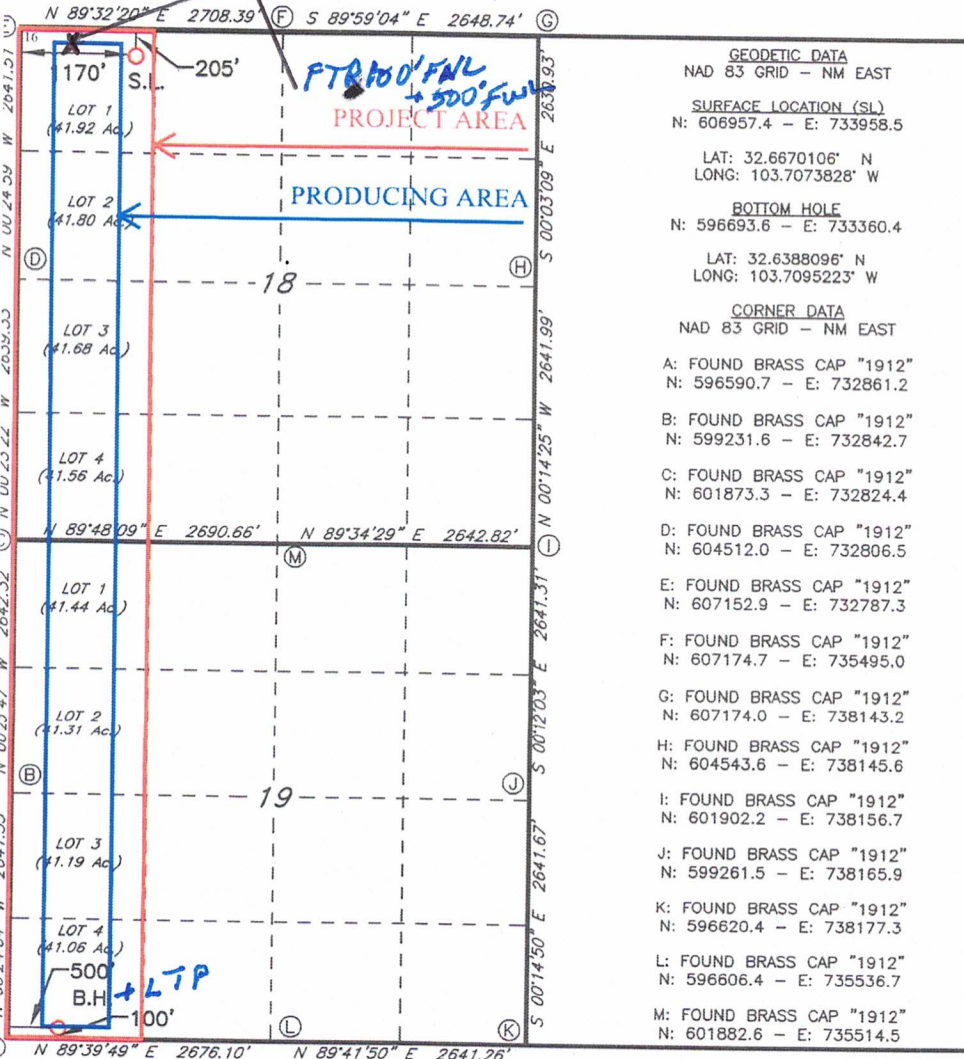 N 89°32'20" E 2708.39' F S 89°59'04" E 2648.74' G
16
170'
S.L.
205'
FNL
PROJECT AREA
LOT 1
(41.92 Ac.)
PRODUCING AREA
LOT 2
(41.80 Ac.)
D
18
H
LOT 3
(41.68 Ac.)
LOT 4
(41.56 Ac.)
N 89°48'09" E 2690.66' N 89°34'29" E 2642.82'
M
I
LOT 1
(41.44 Ac.)
LOT 2
(41.31 Ac.)
B
J
19
LOT 3
(41.19 Ac.)
LOT 4
(41.06 Ac.)
500'
B.H. + LTP
100'
L
K
N 89°39'49" E 2676.10' N 89°41'50" E 2641.26'
2641.57'
N 00°24'59" W
2642.52'
2630.93'
S 00°03'09" E
2641.99'
N 00°14'25" W
2641.31'
S 00°12'03" E
2641.67'
S 00°14'50" E
GEODETIC DATA
NAD 83 GRID – NM EAST
SURFACE LOCATION (SL)
N: 606957.4 – E: 733958.5
LAT: 32.6670106° N
LONG: 103.7073828° W
BOTTOM HOLE
N: 596693.6 – E: 733360.4
LAT: 32.6388096° N
LONG: 103.7095223° W
CORNER DATA
NAD 83 GRID – NM EAST
A: FOUND BRASS CAP "1912"
N: 596590.7 – E: 732861.2
B: FOUND BRASS CAP "1912"
N: 599231.6 – E: 732842.7
C: FOUND BRASS CAP "1912"
N: 601873.3 – E: 732824.4
D: FOUND BRASS CAP "1912"
N: 604512.0 – E: 732806.5
E: FOUND BRASS CAP "1912"
N: 607152.9 – E: 732787.3
F: FOUND BRASS CAP "1912"
N: 607174.7 – E: 735495.0
G: FOUND BRASS CAP "1912"
N: 607174.0 – E: 738143.2
H: FOUND BRASS CAP "1912"
N: 604543.6 – E: 738145.6
I: FOUND BRASS CAP "1912"
N: 601902.2 – E: 738156.7
J: FOUND BRASS CAP "1912"
N: 599261.5 – E: 738165.9
K: FOUND BRASS CAP "1912"
N: 596620.4 – E: 738177.3
L: FOUND BRASS CAP "1912"
N: 596606.4 – E: 735536.7
M: FOUND BRASS CAP "1912"
N: 601882.6 – E: 735514.5